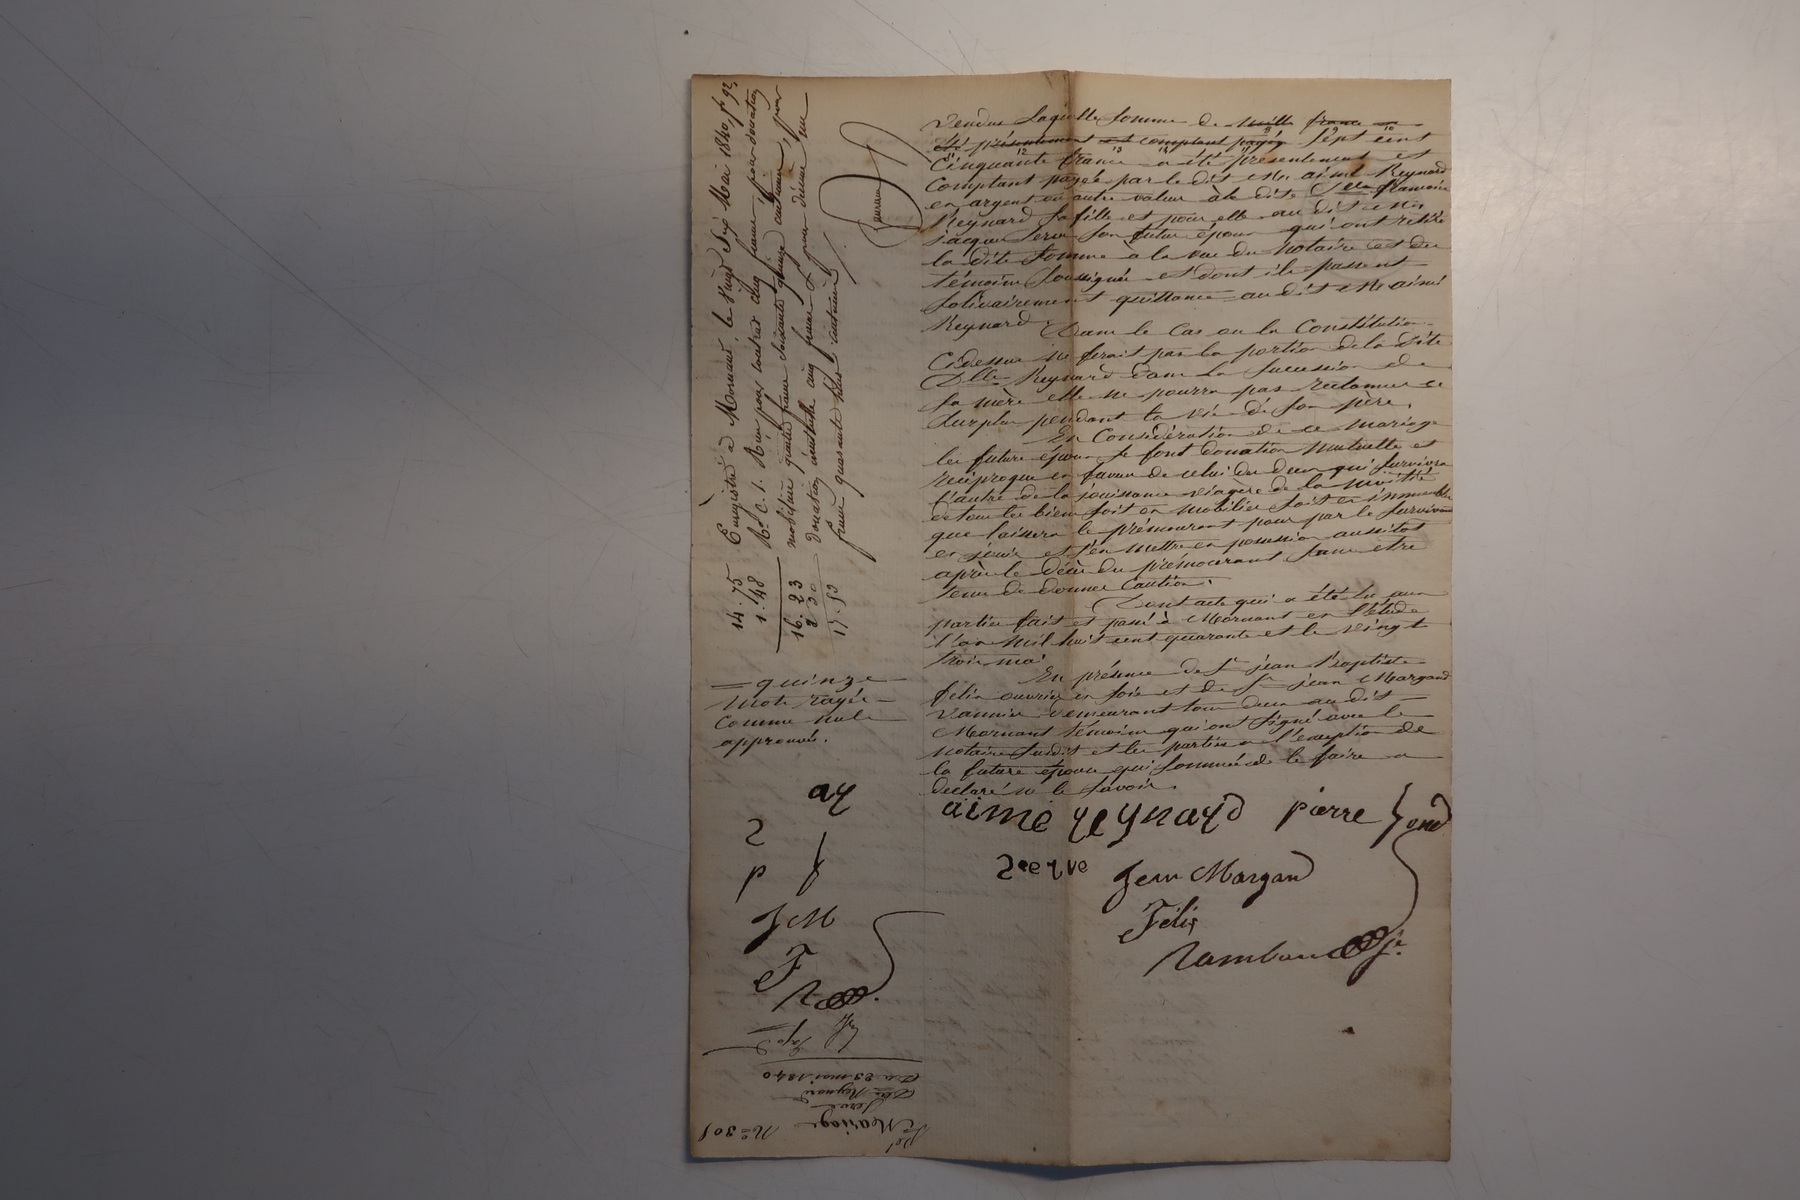 vendus laquelle somme de mille francs a
été présentement et comptant payée sept cent
Cinquante francs a été présentement et
Comptant payée par le dit Me aimé Reynard
en argent ou autre valeur à la dite Delle
Reynard sa fille et pour elle au dit Me
jacques Serve son futur époux qui ont retiré
la dite somme à la vue du Notaire et des
témoins soussignés et dont ils passent
solidairement quittance au dit Me aimé
Reynard.
Dans le Cas ou la Constitution
Cidessus ne serait pas la portion de la dite
Delle Reynard dans la succession de
sa mère elle ne pourra pas réclamer ce
surplus pendant la vie de son père.
En Considération de ce mariage
les futurs époux se font donation mutuelle et
réciproque en faveur de celui des deux qui survivra
l'autre de la jouissance viagère de la moitié
de tous les biens soit en mobilier soit en immeubles
que laissera le prémourant pour par le survivant
en jouir et s'en mettre en possession aussitot
après le décès du prémourant sans etre
tenu de donner Caution.
Dont acte qui a été lu aux
parties fait et passé à Mornant en l'étude
l'an Mil huit cent quarante et le vingt
trois mai
En présence de Sr jean Baptiste
félix ouvrier en soie et de Sr jean Margand
vannier demeurant tous deux au dit
Mornant témoins qui ont signé avec le
notaire susdit et les parties a l'exception de
la future épouse qui sommée de le faire a
declaré ne le savoir.
aimé reynard pierre fond
Serve Jean Margand
Félix
Rambaud
Enrégistré à Mornant, le vingt six Mai 1840, fo 92,
Ro C. 1. Reçu pour contrat cinq francs, pour donation
mobilière quatre francs soixante quinze centimes, pour
donation immobilière cinq francs & pour dixième un
franc quarante huit centimes
14.75
1.48
16.23
17.53
= quinze
Mots rayés
Comme nuls
approuvés.
ay
S
p f
J M
F
R
No 301
Mariage
Serve
Dlle Reynard
Du 23 mai 1840